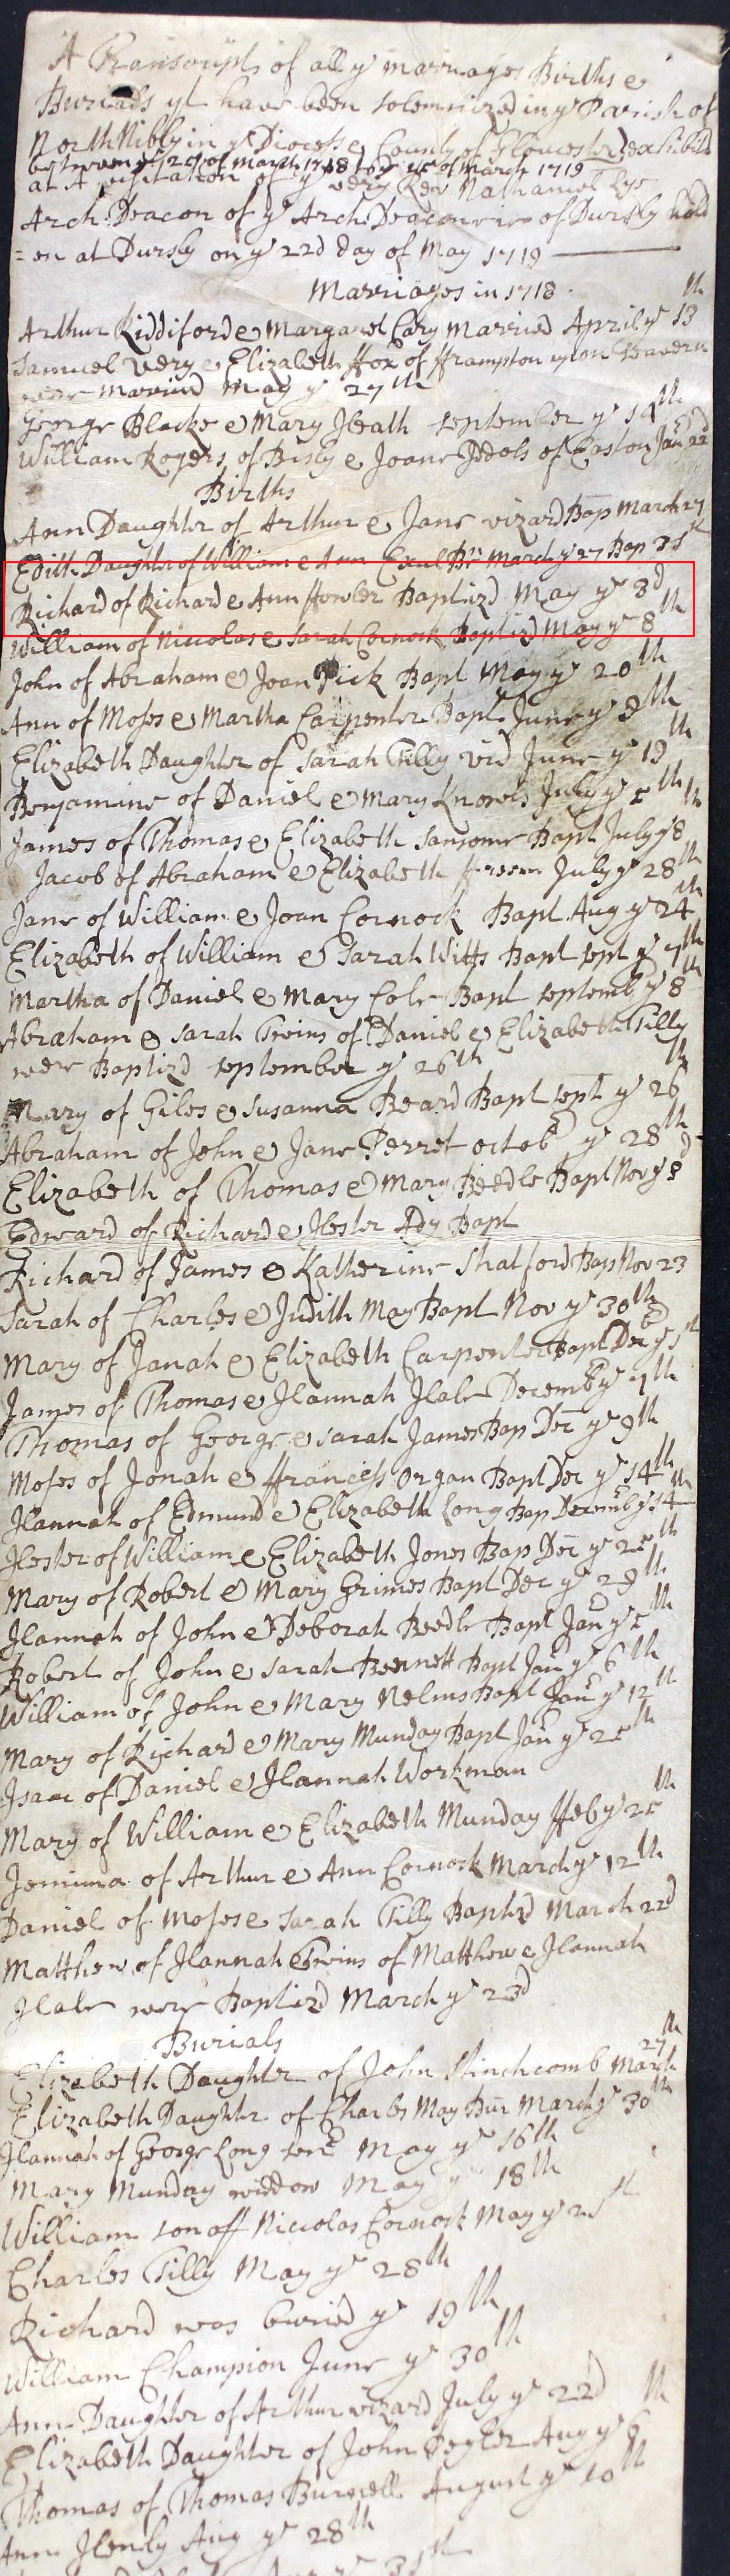 A Transcript of all yᵉ marriages Births &
Burials yt have been solemnized in yᵉ Parish of
North Nibly in yᵉ Diocess & County of Gloucester exhibited
between yᵉ 25 of March 1718 to yᵉ 25 of March 1719
at A visitation of yᵉ very Rev Nathaniel Lye
Arch:Deacon of yᵉ Arch:Deaconrie of Dursly hold
=en at Dursly on yᵉ 22d day of May 1719
Marriages in 1718.
Arthur Riddiford & Margaret Cary married April yᵉ 13th
Samuel Very & Elizabeth ffox of fframpton upon Seavern
were married May yᵉ 27th
George Blacke & Mary Heath september yᵉ 14th
William Rogers of Bisly & Joane of Easton Jan 22d
Births
Ann Daughter of Arthur & Jane vizard Bap March 27
Edith Daughter of William & Ann March yᵉ 27 Bap 31st
Richard of Richard & Ann ffowler Baptizd May yᵉ 3d
William of Niccolas & Sarah Cornock Baptizd May yᵉ 8th
John of Abraham & Joan Pick Bapt May yᵉ 20th
Ann of Moses & Martha Carpenter Bapt June yᵉ 9th
Elizabeth Daughter of Sarah Tilly vid June yᵉ 19th
Benjamine of Daniel & Mary Knowls July yᵉ 5th
James of Thomas & Elizabeth Sansome Bapt July yᵉ 8th
Jacob of Abraham & Elizabeth July yᵉ 28th
Jane of William & Joan Cornock Bapt Aug yᵉ 24th
Elizabeth of William & Sarah Witts Bapt sept yᵉ 7th
Martha of Daniel & Mary Cole Bapt septemb yᵉ 8th
Abraham & Sarah Twins of Daniel & Elizabeth Tilly
were Baptizd september yᵉ 26th
Mary of Giles & Susanna Beard Bapt sept yᵉ 26th
Abraham of John & Jane Perret octob yᵉ 28th
Elizabeth of Thomas & Mary Beedle Bapt Nov yᵉ 3d
Edward of Richard & Hester Ady Bapt
Richard of James & Katherine Shatford Bap Nov 23
Sarah of Charles & Judith May Bapt Nov yᵉ 30th
Mary of Janah & Elizabeth Carpenter Bapt Dec yᵉ 1st
James of Thomas & Hannah Hale Decemb yᵉ 7th
Thomas of George & Sarah James Bap Dec yᵉ 9th
Moses of Jonah & ffrancess Organ Bapt Dec yᵉ 14th
Hannah of Edmund & Elizabeth Long Bap Decemb yᵉ 14th
Hester of William & Elizabeth Jones Bap Dec yᵉ 25th
Mary of Robert & Mary Grimes Bapt Dec yᵉ 29th
Hannah of John & Deborah Beedle Bapt Jan yᵉ 5th
Robert of John & Sarah Bennett Bapt Jan yᵉ 6th
William of John & Mary Nelms Bapt Jan yᵉ 12th
Mary of Richard & Mary Munday Bapt Jan yᵉ 25th
Isaac of Daniel & Hannah Workman
Mary of William & Elizabeth Munday ffeb yᵉ 25th
Jemima of Arthur & Ann Cornock March yᵉ 12th
Daniel of Moses & Sarah Tilly Baptizd March 22d
Matthew of Hannah Twins of Matthew & Hannah
Hale were Baptizd March yᵉ 23d
Burials
Elizabeth Daughter of John Stinchcomb March 27th
Elizabeth Daughter of Charles May Bur March yᵉ 30th
Hannah of George Long senr May yᵉ 16th
Mary Munday widdow May yᵉ 18th
William son off Niccolas Cornock May yᵉ 21st
Charles Tilly May yᵉ 28th
Richard was buried yᵉ 19th
William Champion June yᵉ 30th
Ann Daughter of Arthur vizard July yᵉ 22d
Elizabeth Daughter of John Pegler Aug yᵉ 6th
Thomas of Thomas Burnell August yᵉ 10th
Ann Henly Aug yᵉ 28th
yᵉ 31st